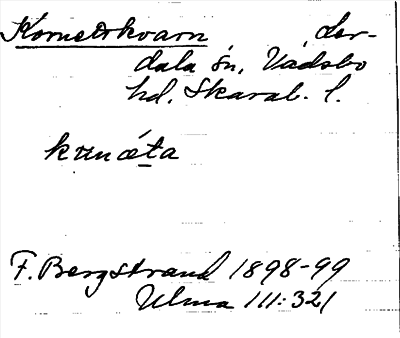 Kometkvarn Ler-
dala sn, Vadsbo
hd. Skarab. l.
F. Bergstrand 1898-99
Ulma 111:321